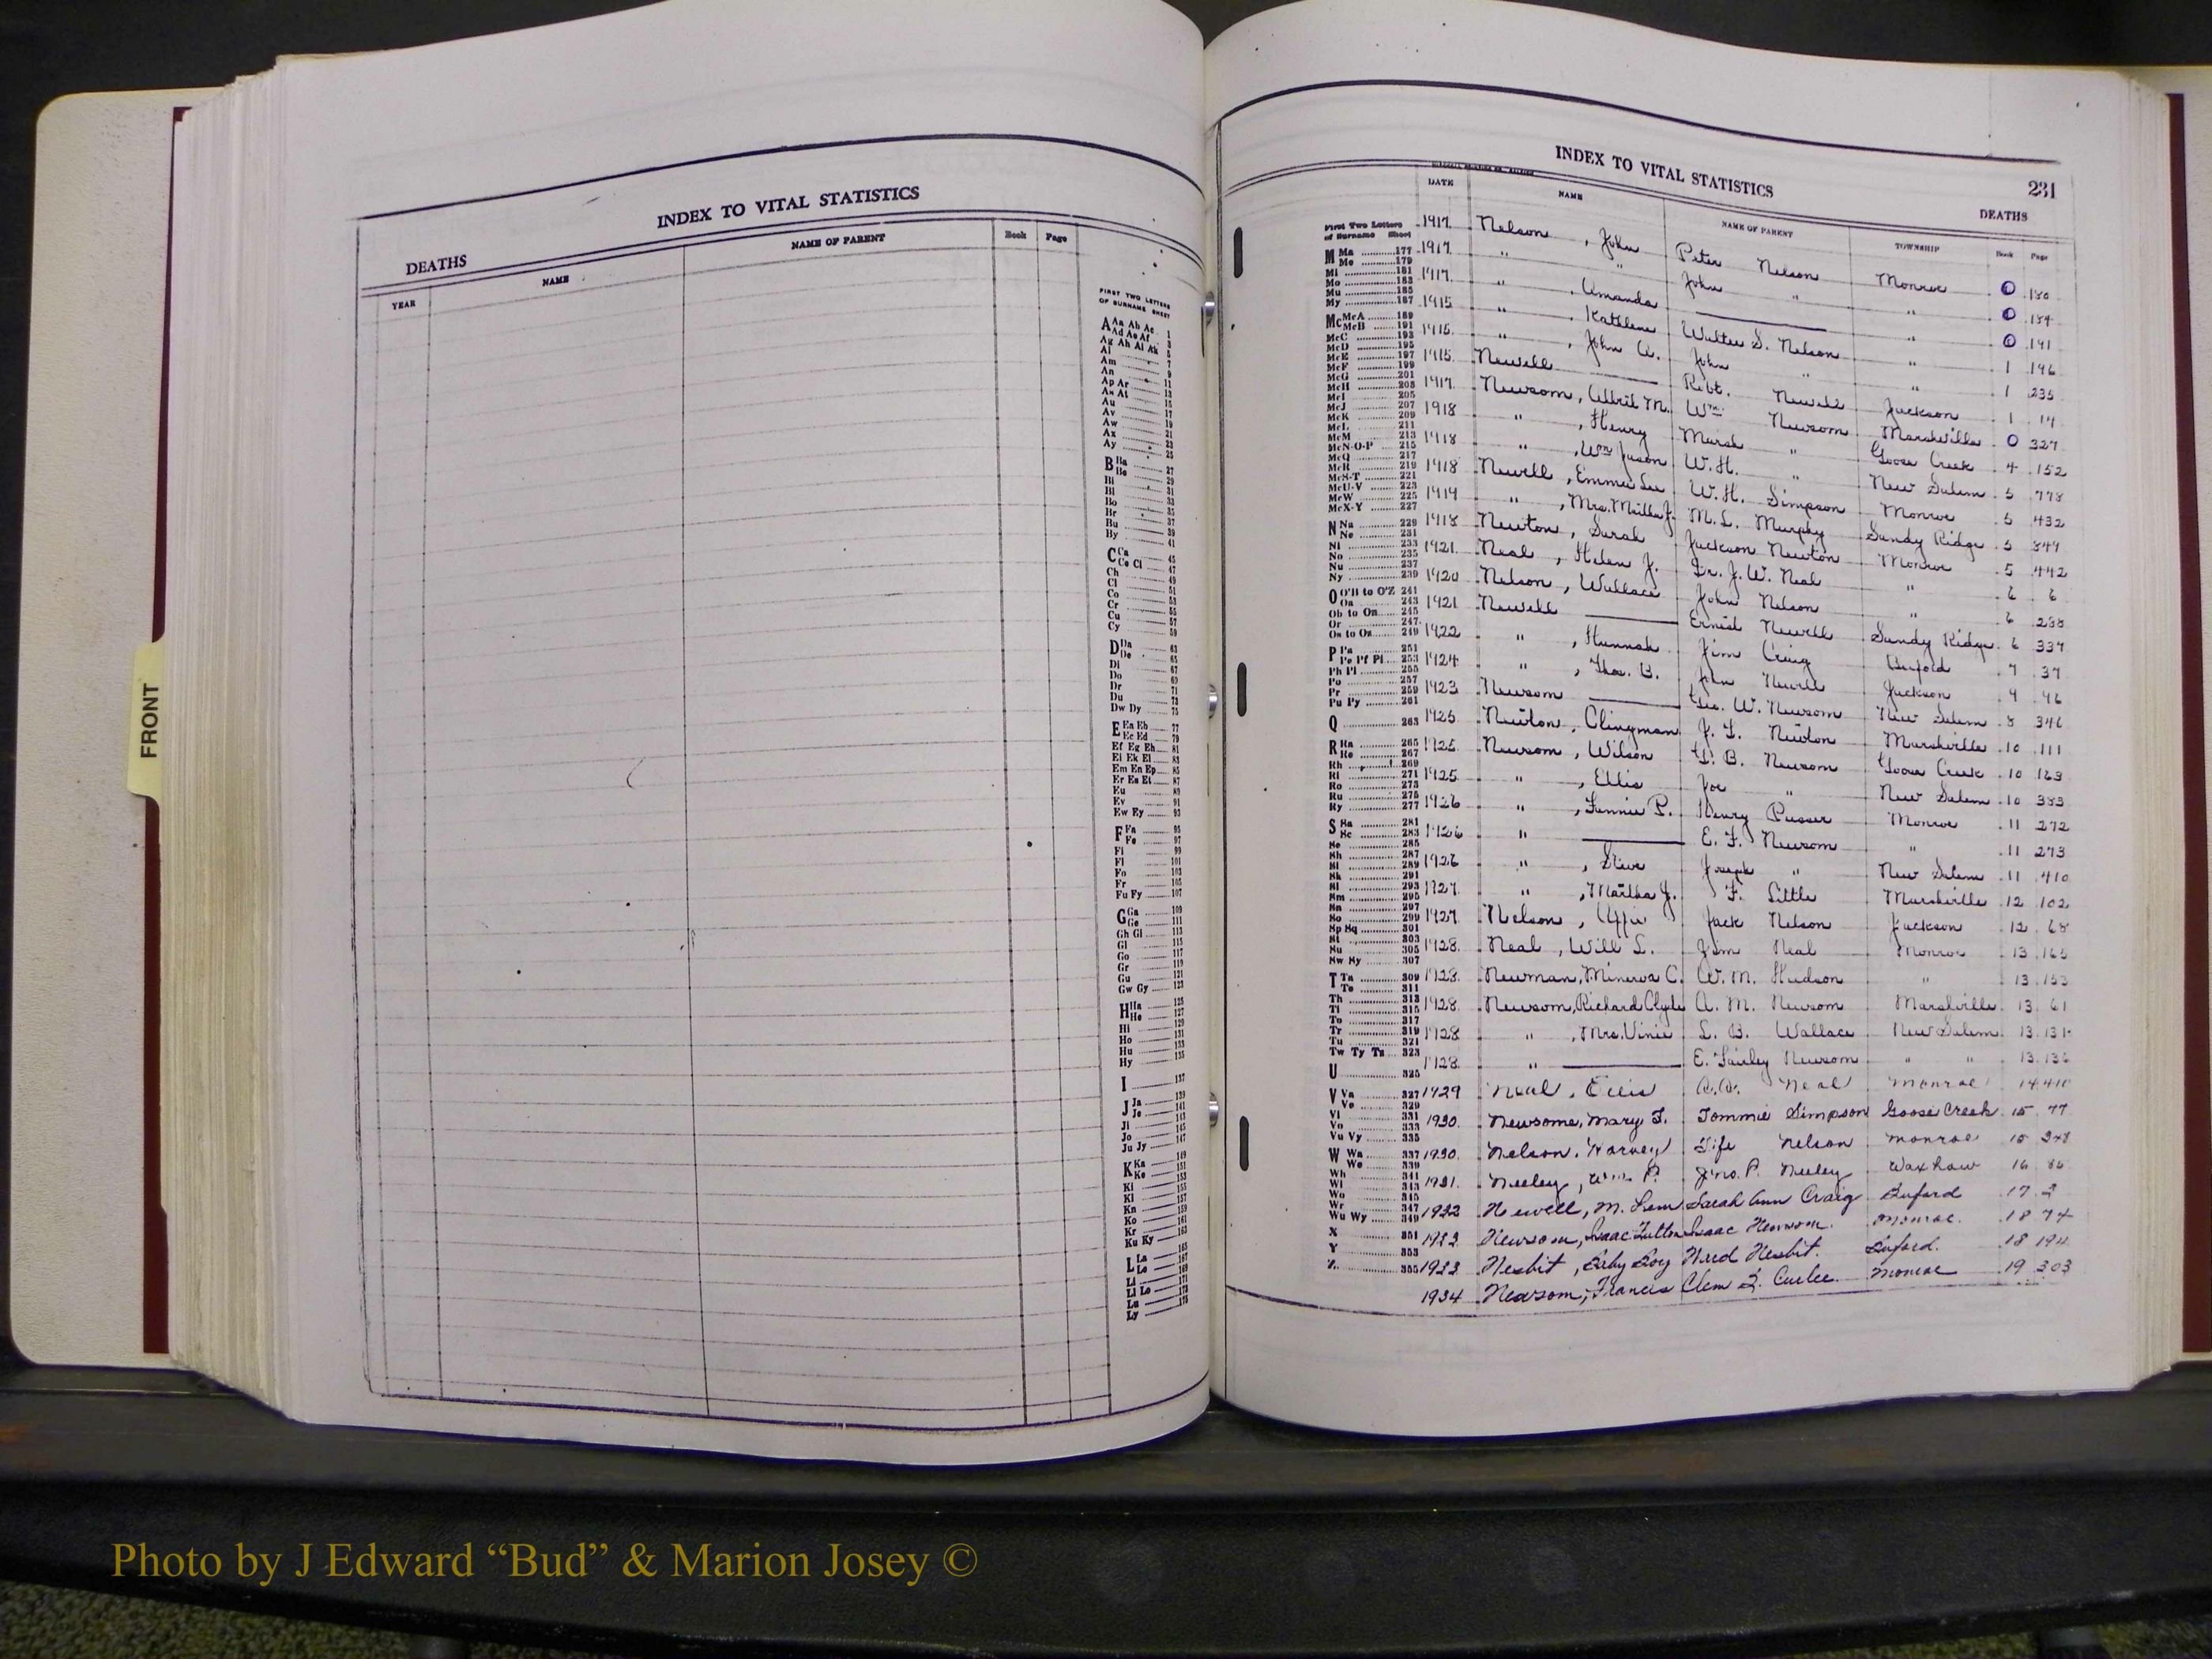 INDEX TO VITAL STATISTICS
DEATHS
YEAR NAME NAME OF PARENT Book Page
FIRST TWO LETTERS
OF SURNAME SHEET
A Aa Ab Ac 1
Ad Ae Af 3
Ag Ah Ai Ak 5
Al 7
Am 9
An 11
Ap Ar 13
As At 15
Au 17
Av 19
Aw 21
Ax 23
Ay 25
B Ba 27
Be 29
Bi 31
Bl 33
Bo 35
Br 37
Bu 39
By 41
C Ca 45
Ce Ci 47
Ch 49
Cl 51
Co 53
Cr 55
Cu 57
Cy 59
D Da 63
De 65
Di 67
Do 69
Dr 71
Du 73
Dw Dy 75
E Ea Eb 77
Ec Ed 79
Ef Eg Eh 81
Ei Ek El 83
Em En Ep 85
Er Es Et 87
Eu 89
Ev 91
Ew Ey 93
F Fa 95
Fe 97
Fi 99
Fl 101
Fo 103
Fr 105
Fu Fy 107
G Ga 109
Ge 111
Gh Gi 113
Gl 115
Go 117
Gr 119
Gu 121
Gw Gy 123
H Ha 125
He 127
Hi 129
Ho 131
Hu 133
Hy 135
I 137
J Ja 139
Je 141
Ji 143
Jo 145
Ju Jy 147
K Ka 149
Ke 151
Ki 153
Kl 155
Kn 157
Ko 159
Kr 161
Ku Ky 163
L La 165
Le 167
Li 169
Ll Lo 171
Lu 173
Ly 175
FRONT
INDEX TO VITAL STATISTICS 231
DEATHS
DATE NAME NAME OF PARENT TOWNSHIP Book Page
First Two Letters
of Surname Sheet
M Ma 177
Me 179
Mi 181
Mo 183
Mu 185
My 187
Mc McA 189
McB 191
McC 193
McD 195
McE 197
McF 199
McG 201
McH 203
McI 205
McJ 207
McK 209
McL 211
McM 213
McN-O-P 215
McQ 217
McR 219
McS-T 221
McU-V 223
McW 225
McX-Y 227
N Na 229
Ne 231
Ni 233
No 235
Nu 237
Ny 239
O O'B to O'Z 241
Oa 243
Ob to On 245
Or 247
Os to Oz 249
P Pa 251
Pe Pf Pi 253
Ph Pl 255
Po 257
Pr 259
Pu Py 261
Q 263
R Ra 265
Re 267
Rh 269
Ri 271
Ro 273
Ru 275
Ry 277
S Sa 281
Sc 283
Se 285
Sh 287
Si 289
Sk 291
Sl 293
Sm 295
Sn 297
So 299
Sp Sq 301
St 303
Su 305
Sw Sy 307
T Ta 309
Te 311
Th 313
Ti 315
To 317
Tr 319
Tu 321
Tw Ty Tz 323
U 325
V Va 327
Ve 329
Vi 331
Vo 333
Vu Vy 335
W Wa 337
We 339
Wh 341
Wi 343
Wo 345
Wr 347
Wu Wy 349
X 351
Y 353
Z 355
1917 Nelson, John Peter Nelson Monroe 0 180
1917 " " John " " 0 184
1917 " , Amanda " 0 191
1915 " , Kathlene Walter S. Nelson " 1 196
1915 " , John A. John " " 1 235
1915 Newell Robt. Newell Jackson 1 14
1917 Newsom, M. Wm. Newsom Marshville 0 327
1918 " , Henry Marsh " Goose Creek 4 152
1918 " , Wm Jason W.H. " New Salem 5 778
1918 Newell, Emma Lee W.H. Simpson Monroe 5 432
1919 " , Mrs. J. M.L. Murphy Sandy Ridge 5
1918 Newton, Sarah Jackson Newton Monroe 5 442
1921 Neal, Helen J. Dr. J.W. Neal " 6 6
1920 Nelson, Wallace John Nelson " 6 238
1921 Newell Ernest Newell Sandy Ridge 6 337
1922 " , Hannah Jim Craig Buford 7 37
1924 " , Thos. B. John Newell Jackson 9 46
1923 Newsom Geo. W. Newsom New Salem 8 346
1925 Newton, Clingman J. F. Newton Marshville 10 111
1925 Newsom, Wilson B. Newsom Goose Creek 10 163
1925 " , Ellis Joe " New Salem 10 383
1926 " , Fannie P. Henry Pusser Monroe 11 272
1926 " E. F. Newsom " 11 273
1926 " , Steve Joseph " New Salem 11 410
1927 " , Martha J. F. Little Marshville 12 102
1927 Nelson, Jack Nelson Jackson 12 68
1928 Neal, Will L. Jim Neal Monroe 13 165
1928 Newman, Minerva C. W. M. Hudson " 13 153
1928 Newsom, Richard Clyde A. M. Newsom Marshville 13 61
1928 " , Mrs. Vinie L. B. Wallace New Salem 13 131
1928 " E. Fairley Newsom " " 13 136
1929 Neal, Ellis Neal Monroe 14 410
1930 Newsome, Mary F. Tommie Simpson Goose Creek 15 77
1930 Nelson, Harvey Nelson Monroe 15 248
1931 Neeley, Wm. P. Jno. P. Neeley Waxhaw 16 85
1932 Newell, M. Lem Sarah Ann Craig Buford 17 2
1933 Newsom, Isaac Isaac Newsom. Monroe. 18 74
1933 Nesbit, Baby Boy Nesbit. Buford. 18 194
1934 Newsom, Francis Clem Curlee. Monroe 19 303
Photo by J Edward “Bud” & Marion Josey ©